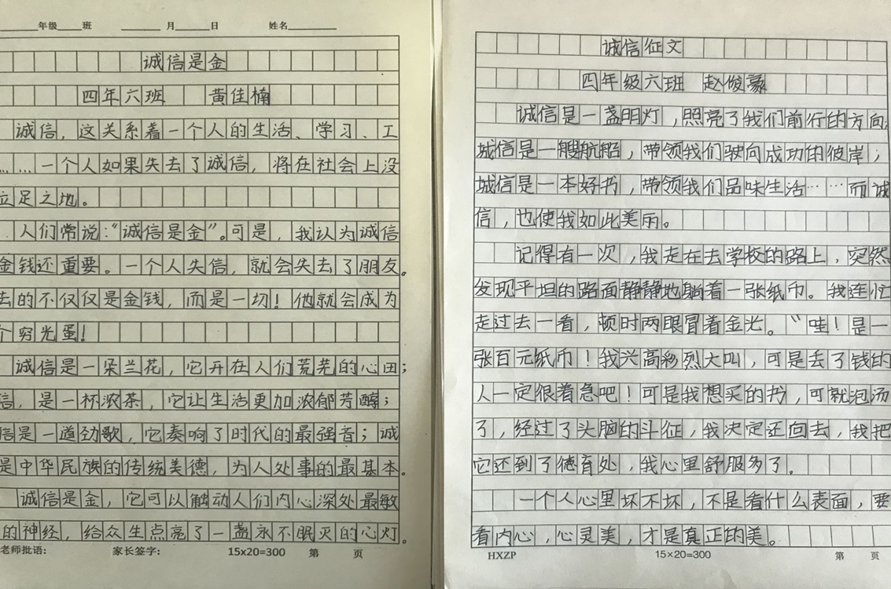 年级 班 月 日 姓名
诚信是金
四年六班 黄佳楠
诚信，这关系着一个人的生活、学习、工
……一个人如果失去了诚信，将在社会上没
立足之地。
人们常说："诚信是金"。可是，我认为诚信
金钱还重要。一个人失信，就会失去了朋友。
去的不仅仅是金钱，而是一切！他就会成为
个穷光蛋！
诚信是一朵兰花，它开在人们荒芜的心田；
信，是一杯浓茶，它让生活更加浓郁芳醇；
信是一道劲歌，它奏响了时代的最强音；诚
是中华民族的传统美德，为人处事的最基本。
诚信是金，它可以触动人们内心深处最敏
的神经，给众生点亮了一盏永不眠灭的心灯。
老师批语: 家长签字: 15×20=300 第 页
诚信征文
四年级六班 赵俊豪
诚信是一盏明灯，照亮了我们前行的方向；
诚信是一艘航船，带领我们驶向成功的彼岸；
诚信是一本好书，带领我们品味生活……而诚
信，也使我如此美丽。
记得有一次，我走在去学校的路上，突然
发现平坦的路面静静地躺着一张纸币。我连忙
走过去一看，顿时两眼冒着金光。"哇！是一
张百元纸币！我兴高彩烈大叫，可是丢了钱的
人一定很着急吧！可是我想买的书，可就泡汤
了，经过了头脑的斗征，我决定还回去，我把
它还到了德育处，我心里舒服多了。
一个人心里坏不坏，不是看什么表面，要
看内心，心灵美，才是真正的美。
HXZP 15×20=300 第 页